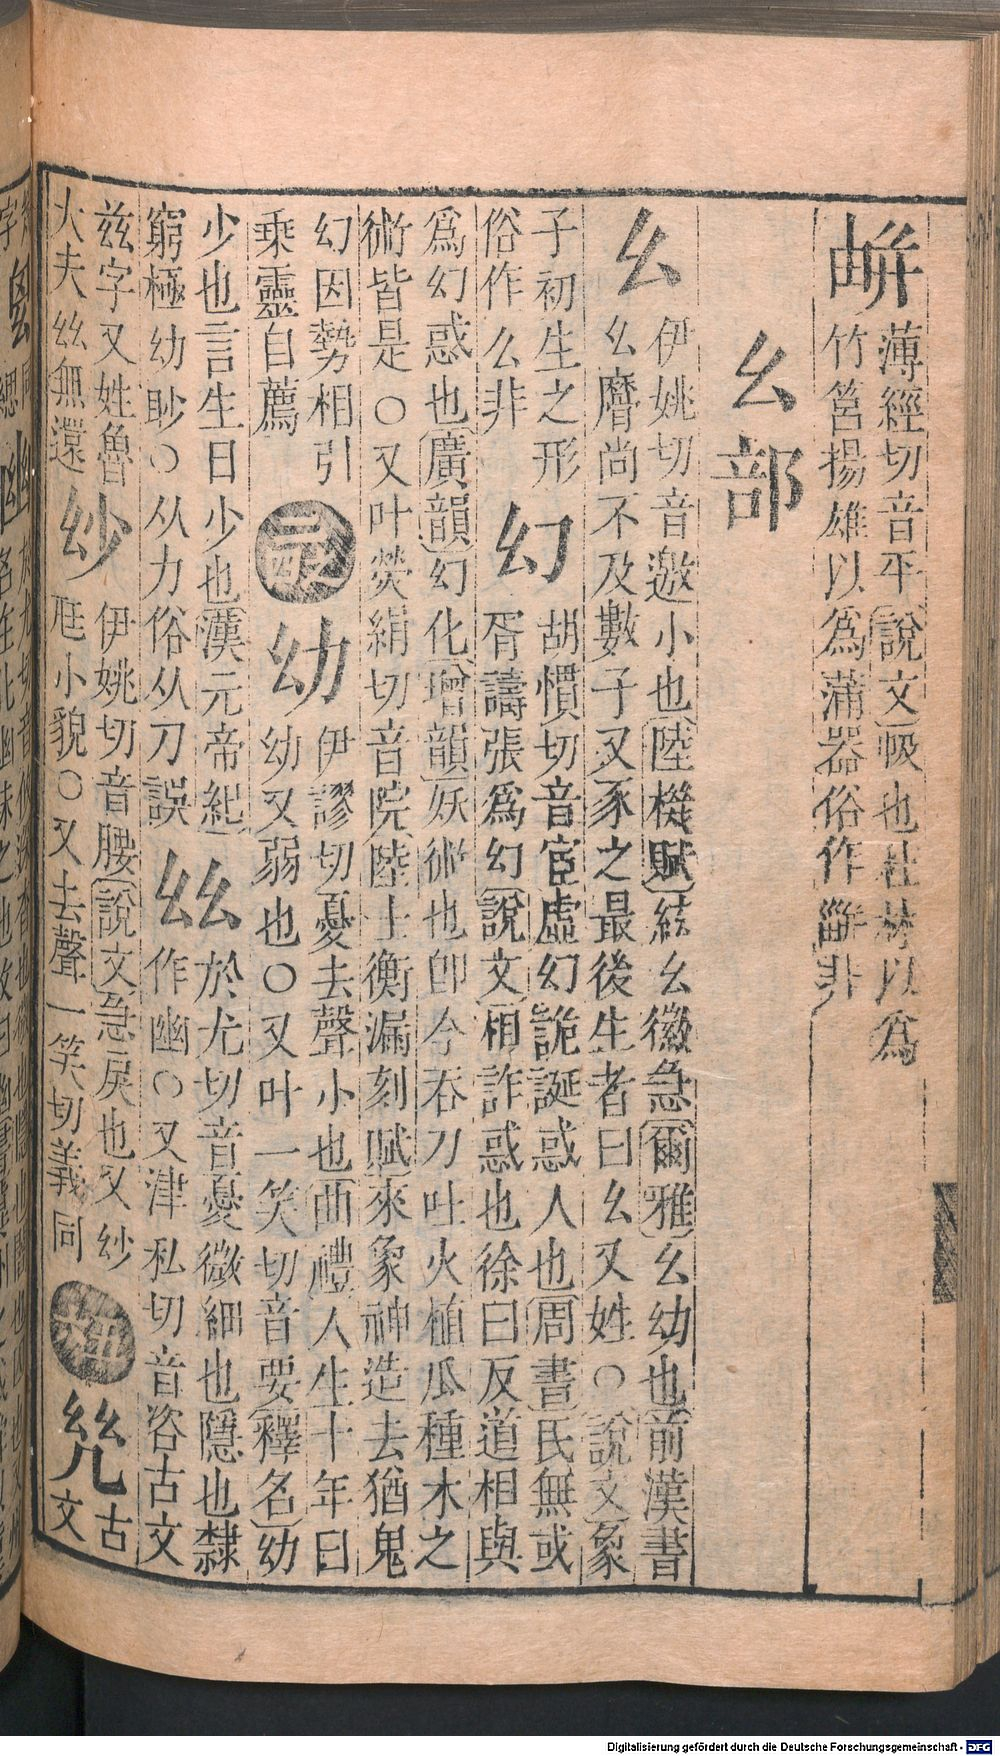 薄經切音平説文㕋也杜林以爲
竹筥揚雄以爲蒲器俗作非
幺部
幺
伊姚切音邀小也陸機賦絃幺徽急爾雅幺幼也前漢書
幺麿尚不及數子又豕之最後生者曰幺又姓○説文象
子初生之形
俗作么非
幻
胡慣切音宦虛幻詭誕惑人也周書民無或
胥譸張爲幻説文相詐惑也徐曰反道相與
爲幻惑也廣韻幻化增韻妖術也卽今吞刀吐火植瓜種木之
術皆是○又叶熒絹切音院陸士衡漏刻賦來象神造去猶鬼
幻因勢相引
乘靈自薦
幼
伊謬切憂去聲小也曲禮人生十年曰
幼又弱也○又叶一笑切音要釋名幼
少也言生日少也漢元帝紀
窮極幼眇○从力俗从刀誤
𢆶
於尤切音憂微細也隱也隸
作幽○又津私切音咨古文
玆字又姓魯
大夫𢆶無還
紗
伊姚切音腰説文急戾也又紗
尫小貌○又去聲一笑切義同
古
文
Digitalisierung gefördert durch die Deutsche Forschungsgemeinschaft - DFG